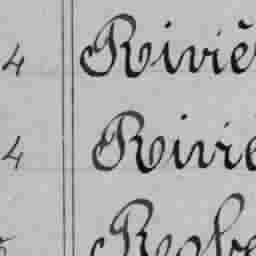 4 Riviè
4 Riviè
Robe